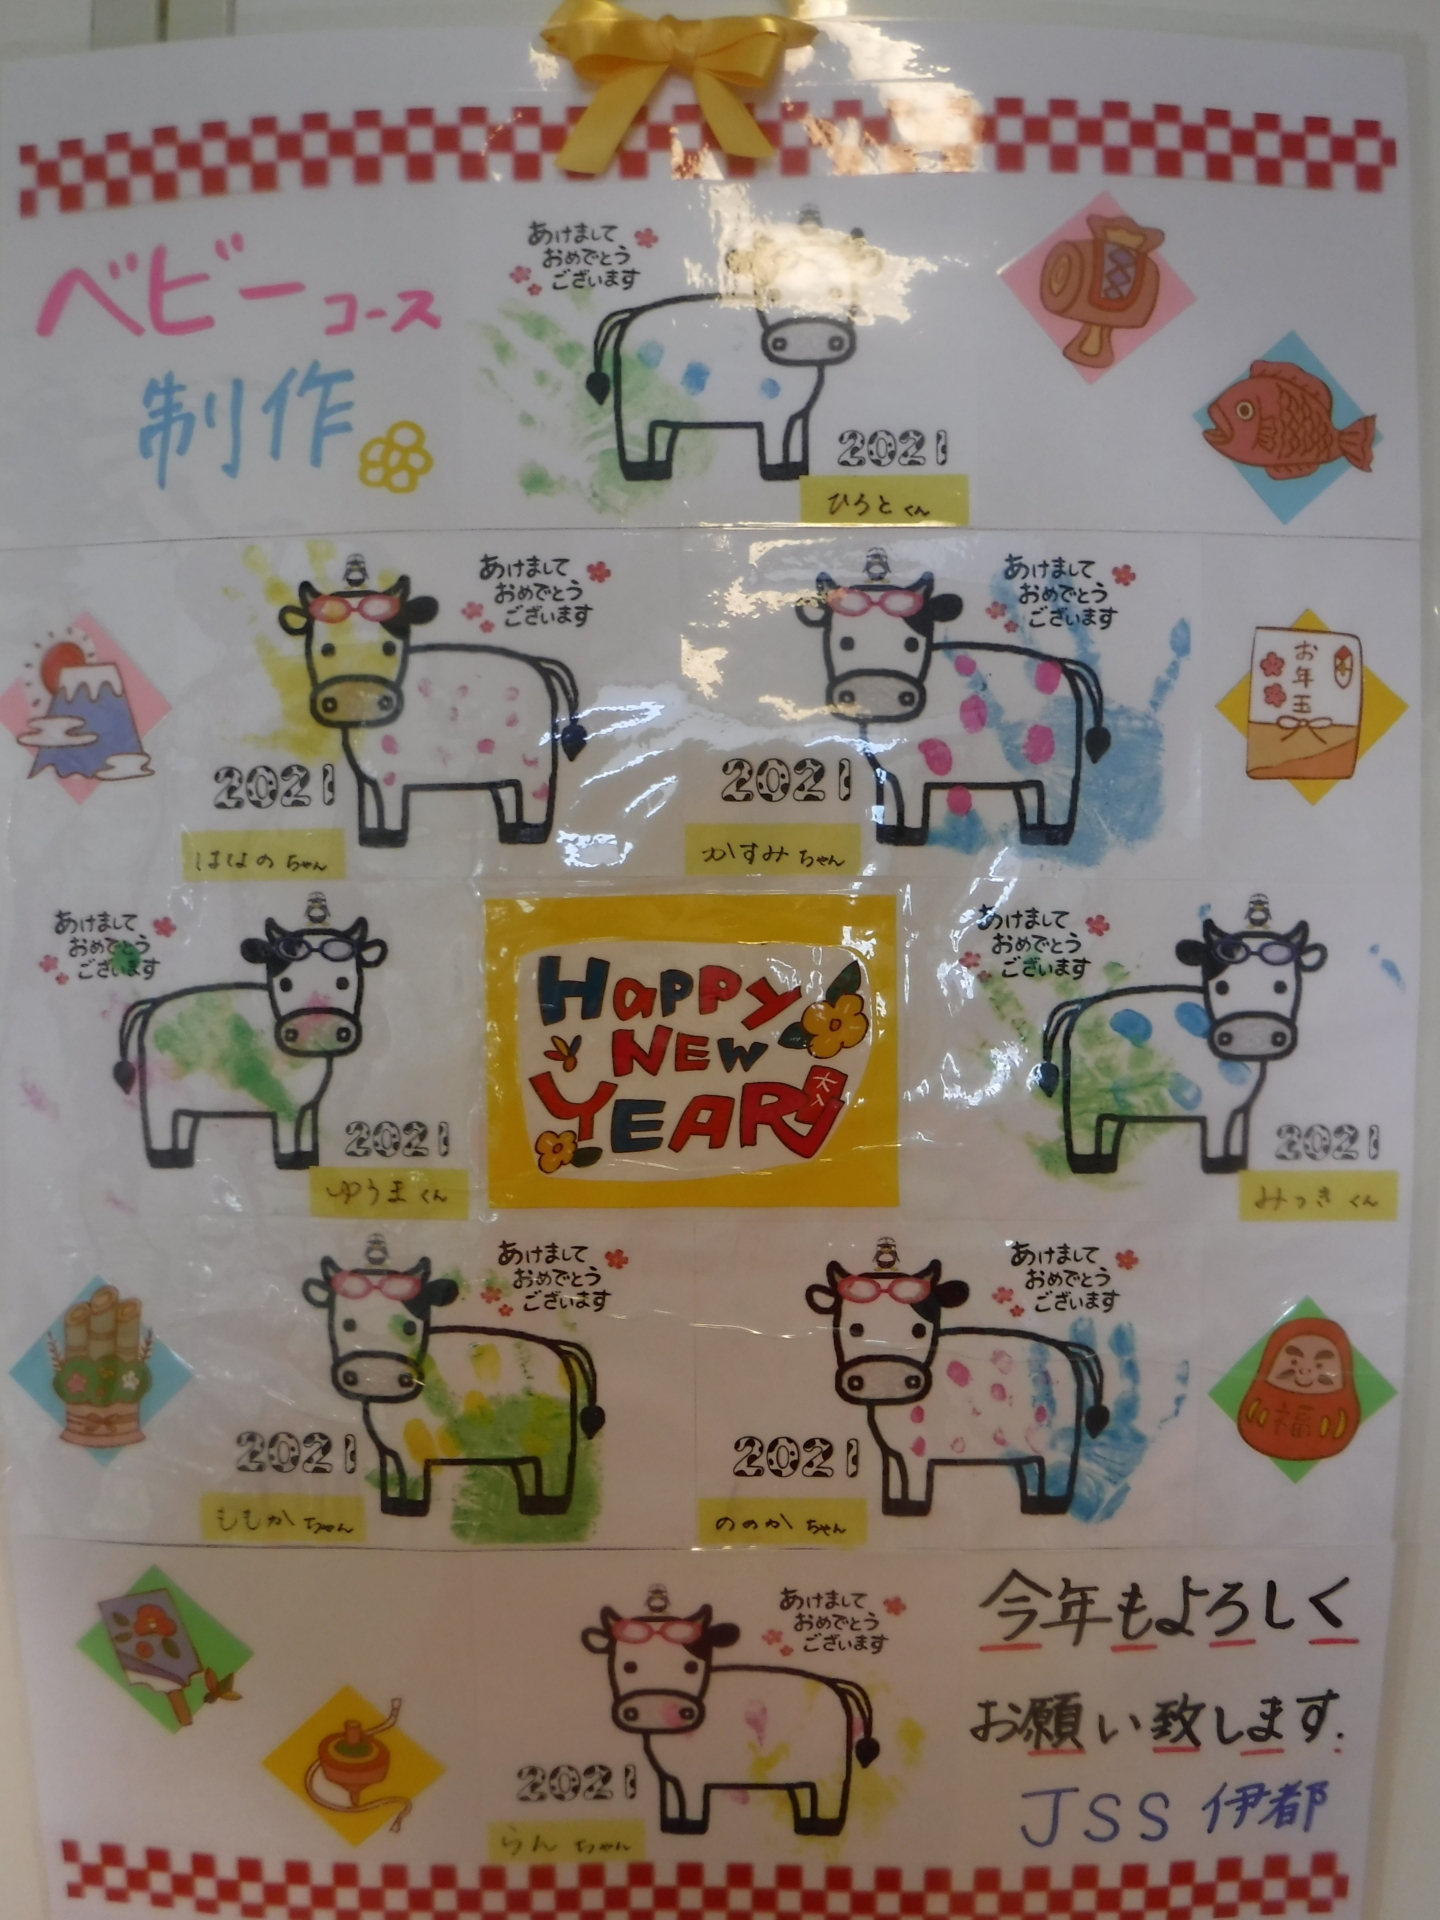 ベビーコース
制作
あけまして
おめでとう
ございます
2021
ひろとくん
お年玉
あけまして
おめでとう
ございます
2021
ははのちゃん
あけまして
おめでとう
ございます
2021
かすみちゃん
あけまして
おめでとう
ございます
2021
ゆうまくん
HAPPY
NEW
YEAR
あけまして
おめでとう
ございます
2021
みつきくん
あけまして
おめでとう
ございます
2021
ももかちゃん
あけまして
おめでとう
ございます
2021
ののかちゃん
福
あけまして
おめでとう
ございます
2021
らんちゃん
今年もよろしく
お願い致します.
JSS 伊都